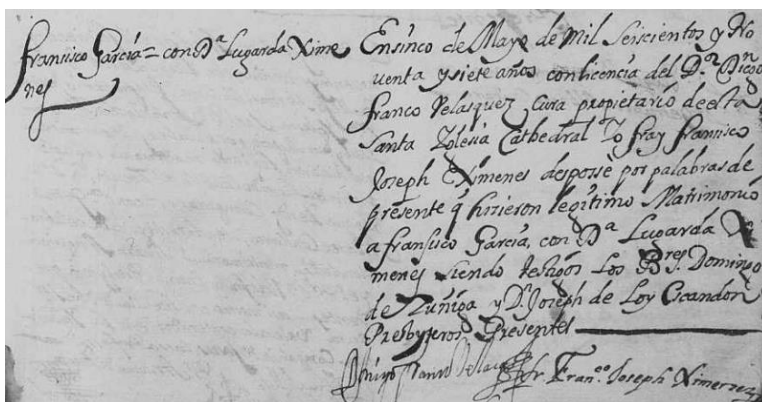 Francisco Garcia = con D.ª Lugarda Xime
nes
Ensinco de Mayo de Mil Seiscientos y No
venta y siete años conlicencia del D.r
Franco Velasquez Cura propietario deesta
Santa Yglesia Cathedral Yo fray Francisco
Joseph Ximenes despossè por palabras de
presente q̃ hisieron legitimo Matrimonio
a fransisco Garcia, con D.ª Lugarda Xi
menes siendo testigos Los B.res Domingo
de Zuñiga y D.n Joseph de Loy Escandon
Presbyteros Presentes
fr Fran.co Joseph Ximenez